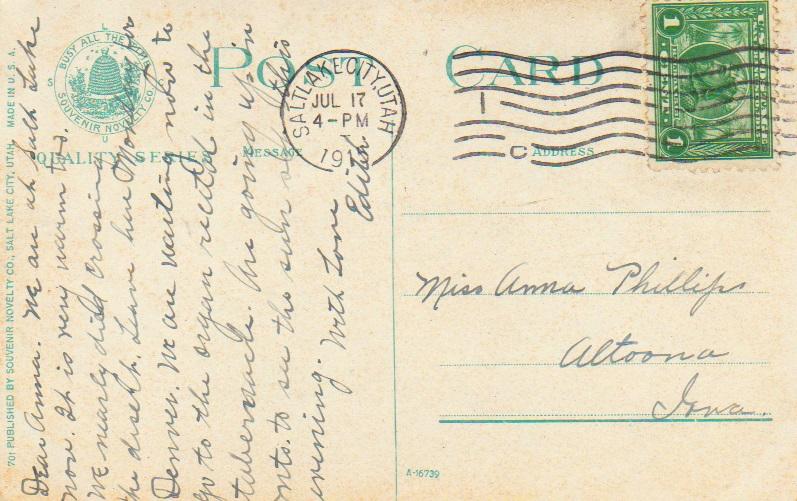 701 PUBLISHED BY SOUVENIR NOVELTY CO., SALT LAKE CITY, UTAH. MADE IN U. S. A.
BUSY ALL THE
SOUVENIR NOVELTY CO.
S L C
U
QUALITY SERIES
POST CARD
MESSAGE
ADDRESS
SALT LAKE CITY, UTAH
JUL 17
4-PM
191
1 1
Dear Anna. We are at Salt Lake
now. It is very warm to.
We nearly died crossing
the desert. Leave here Monday for
Denver. We are waiting now to
go to the organ recital in the
tubernacle. Are going up in
mts. to see the sun set this
evening. With Love
Edith
Miss Anna Phillips
Altoona
Iowa.
A-16739